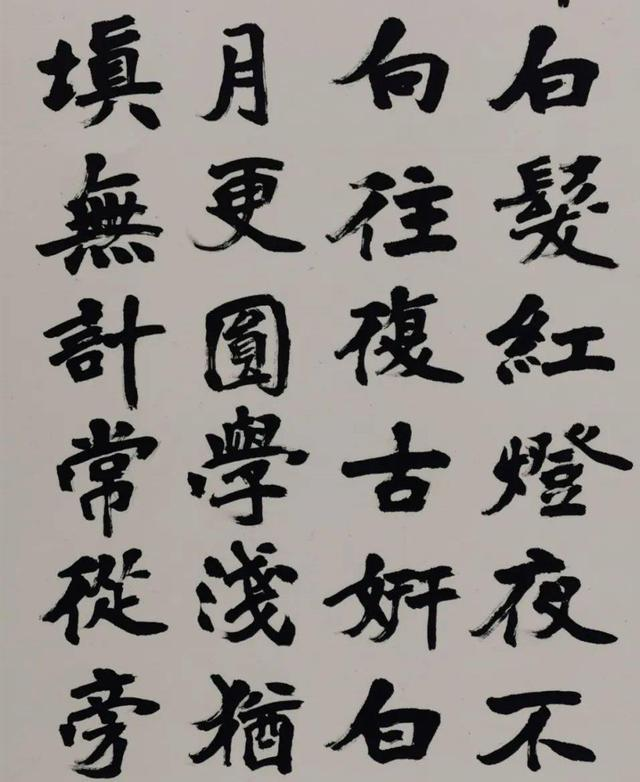 白髮紅燈夜不
向往復古妍白
月更圓學淺猶
填無計常從旁